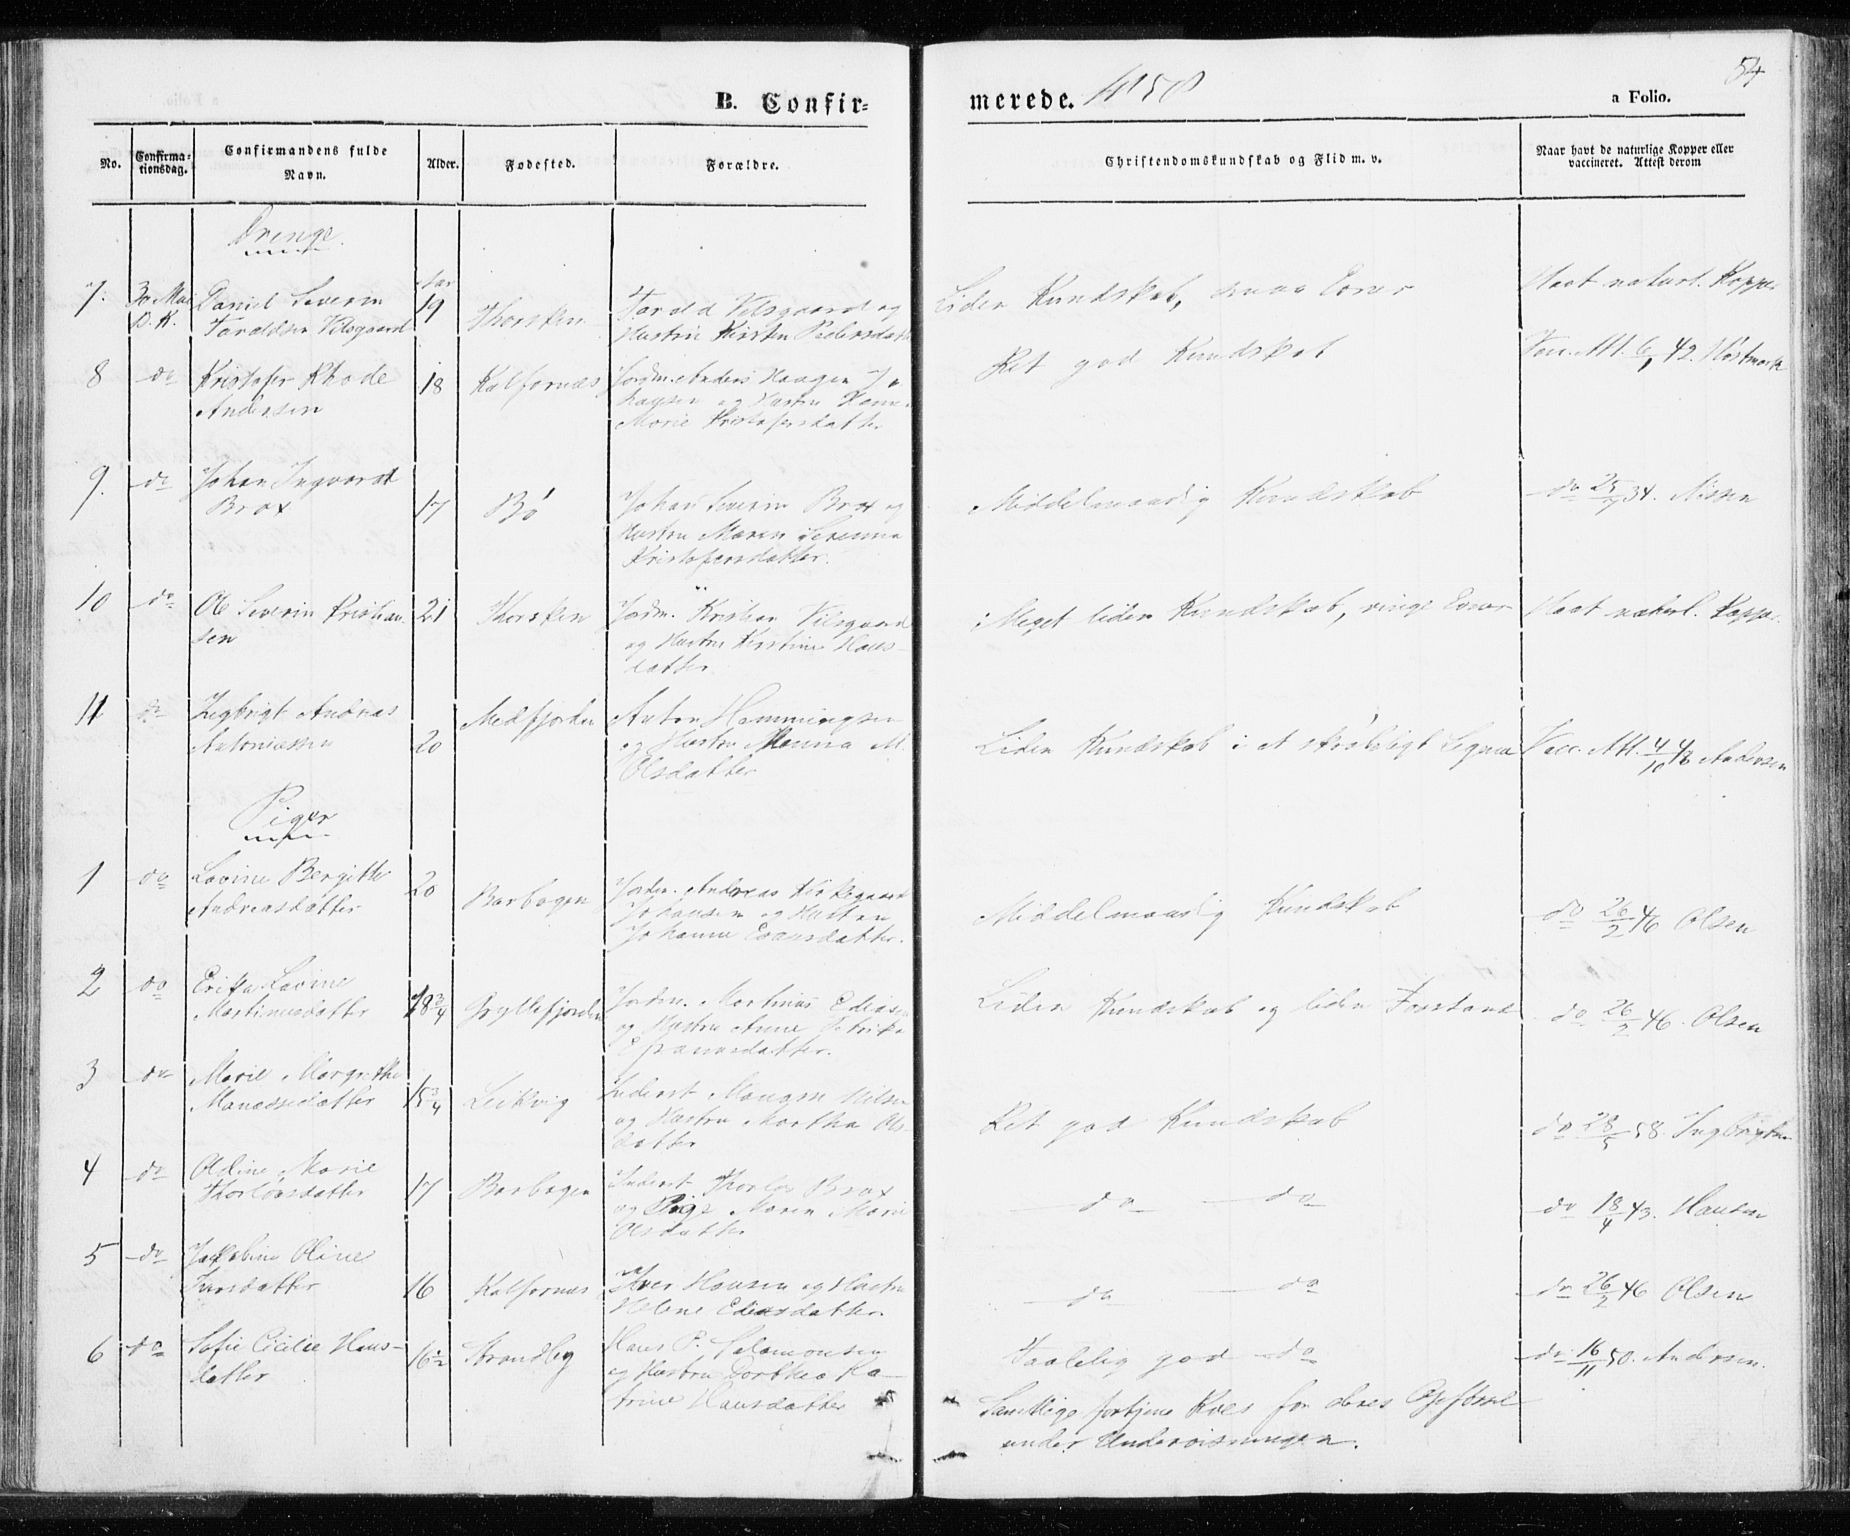 B. Confir-
merede. 1858
54
a Folio.
No.
Confirma-
tionsdag.
Confirmandens fulde
Navn.
Alder.
Fødested.
Forældre.
Christendomskundskab og Flid m. v.
Naar havt de naturlige Kopper eller
vaccineret. Attest derom
Drenge.
7.
30 Mai
D. K.
Daniel Severin
Taraldsen Vilsgaard
Aar
19
Thorsken
Tarald Vilsgaard og
Hustru Kirsten Pedersdatter
Liden Kundskab, smaa Evner
Havt naturl. Kopper
8
do
Kristofer Rhode
Andersen
18
Kalfornæs
Jordm. Anders Haagen Jo
hansen og Hustru Hanna
Marie Kristofersdatter
Ret god Kundskab
Vacc. Att. 6/1 42. Høstmark
9.
do
Johan Ingvardt
Brox
17
Bø
Johan Severin Brox og
Hustru Maren Serenna
Kristofersdatter.
Middelmaadig Kundskab
do 25/7 34. Nissen
10
do
Ole Severin Kristian
sen
21
Thorsken
Jordm. Kristian Vilsgaard
og Hustru Kirstine Hans-
datter
Meget liden Kundskab, ringe Evner
Havt naturl. Kopper.
11
do
Andreas
Antoniussen
20
Medfjorden
Anton Hemmingsen
og Hustru M.
Olsdatter
Liden Kundskab i et skrøbeligt Legeme
Vacc. Att. 4/10 43 Andersen
Piger
1
do
Lovine Bergitte
Andreasdatter
20
Barbogen
Jordm. Andreas Kirkegaard
Johansen og Hustru
Johanna Evarsdatter.
Middelmaadig Kundskab
do 26/2 46 Olsen
2
do
Erika Lovine
Martinusdatter
18 3/4
Gryllefjorden
Jordm. Martinus Ediassen
og Hustru Anne
Liden Kundskab og liden Forstand
do 26/2 46. Olsen
3
do
Marie Margrethe
Manassedatter
15 3/4
Leikvig
Inderst Nilsen
og Hustru Martha Ols
datter
Ret god Kundskab
do 28/5 58. Ingebrigtsen
4
do
Oldine Marie
Thorlövsdatter
17
Barbogen
Inderst Thorlöv Brox
og Pige Maren Marie
Olsdatter
do do
do 18/4 43. Hansen
5
do
Jakobine Oline
Iversdatter
16
Kalfornæs
Iver Hansen og Hustru
Helene Ediasdatter.
do do
do 26/2 46 Olsen
6
do
Sofie Cicilie Hans-
datter
16 1/2
Strandby
Hans P. Salomonsen
og Hustru Dorthea Ka-
trine Hansdatter
Taalelig god do
do 16/11 50. Andersen.
Samtlige fortjene Roes for deres Opførsel
under Underviisningen.